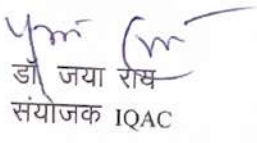 डॉ जया रॉय
संयोजक IQAC